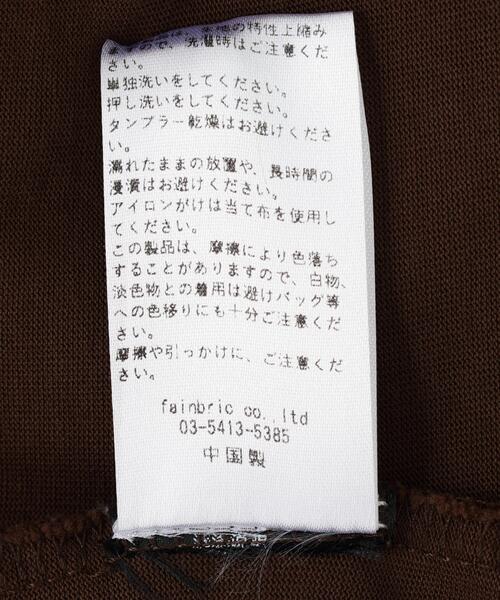 は、生地の特性上縮み
ますので、洗濯時はご注意くだ
さい。
単独洗いをしてください。
押し洗いをしてください。
タンブラー乾燥はお避けくださ
い。
濡れたままの放置や、長時間の
浸漬はお避けください。
アイロンがけは当て布を使用し
てください。
この製品は、摩擦により色落ち
することがありますので、白物、
淡色物との着用は避けバッグ等
への色移りにも十分ご注意くだ
さい。
摩擦や引っかけに、ご注意くだ
さい。
fainbric co.,ltd
03-5413-5385
中国製